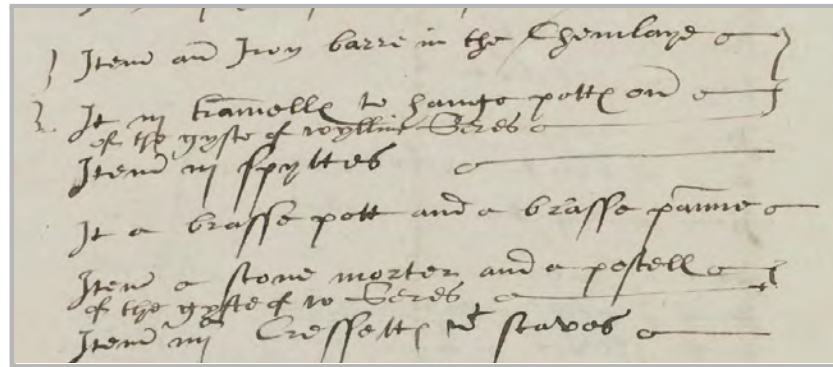 Item an Iron barre in the Chemlaye
It iij tramelles to hainge pottes on
of the gyfte of wyllm Seres
Item iij spyttes
It a brasse pott and a brasse panne
Item a stone morter and a pestell
of the gyfte of w Seres
Item iiij Cressettes wt staves